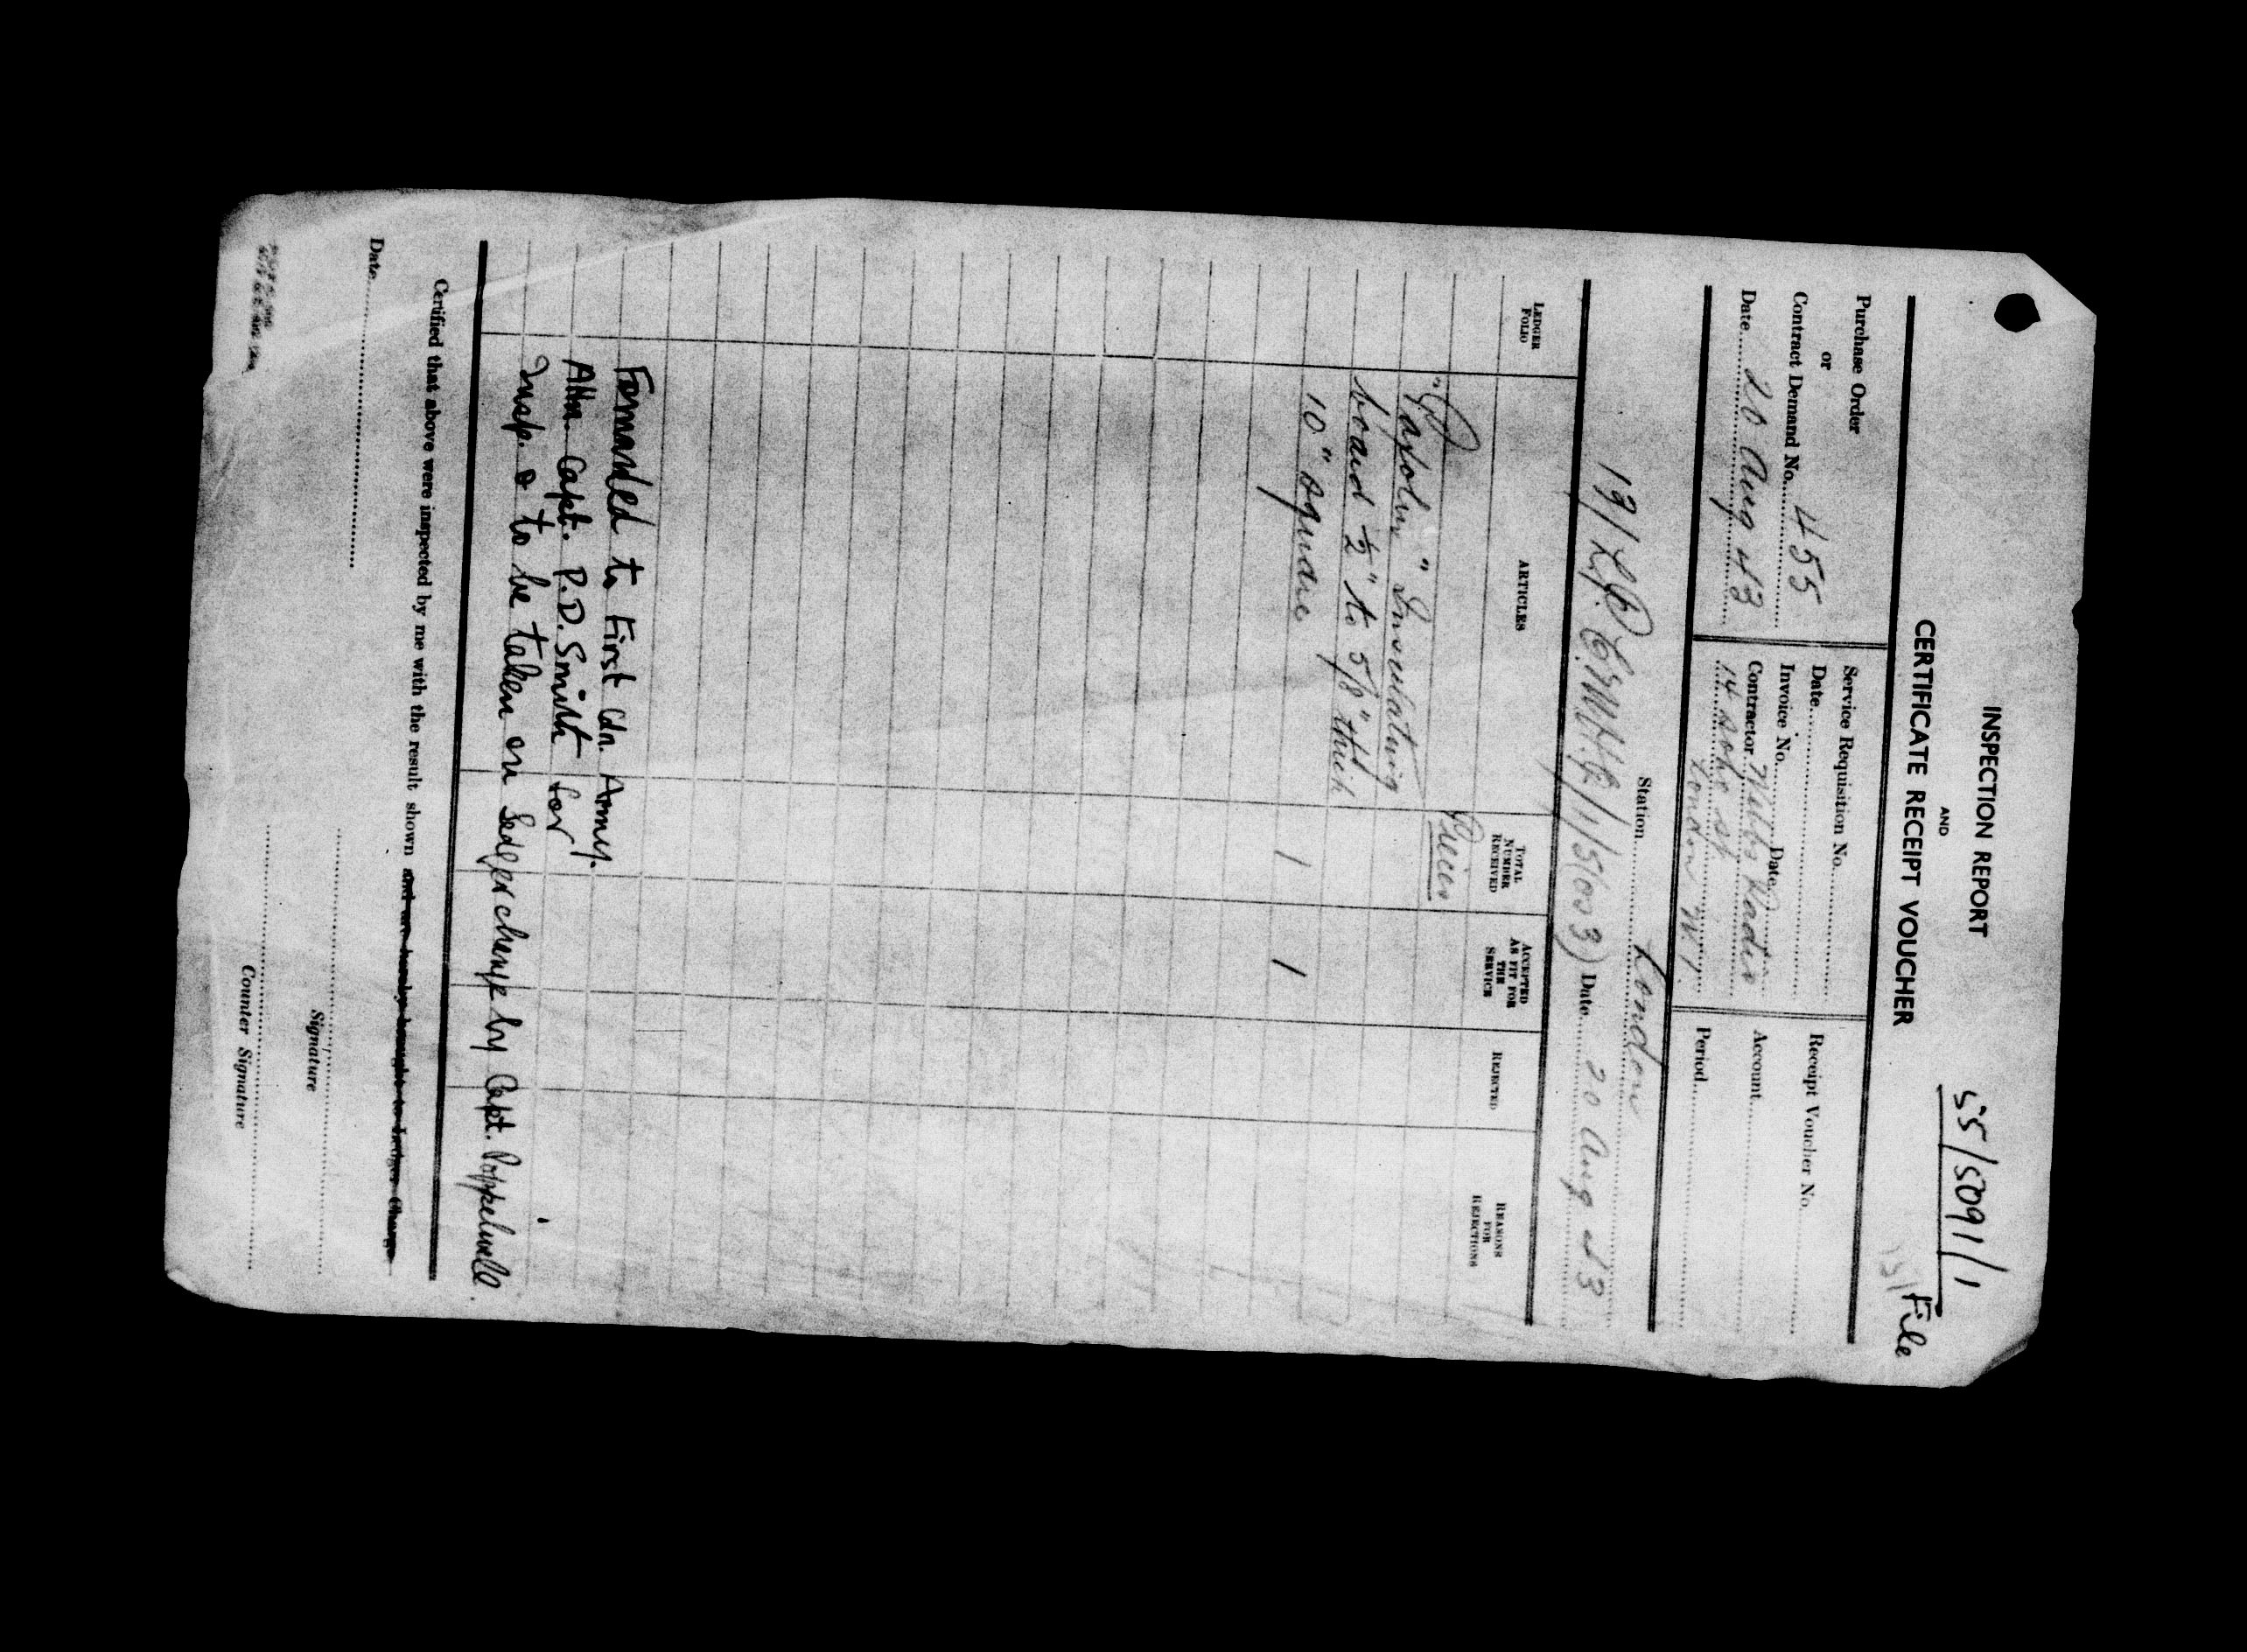 55/5091/1
File
INSPECTION REPORT
AND
CERTIFICATE RECEIPT VOUCHER
Purchase Order
or
Contract Demand No. 455
Date 20 Aug 43
Service Requisition No.
Date
Invoice No. Date
Contractor Webbs Radio
14 Soho St.
London W.1.
Receipt Voucher No.
Account
Period
Station London
Date 20 Aug 43
LEDGER FOLIO
ARTICLES
TOTAL NUMBER RECEIVED
ACCEPTED AS FIT FOR THE SERVICE
REJECTED
REASONS FOR REJECTIONS
"Paxolin" Insulating
board ½" to 5/8" thick
10" square 1 1
Forwarded to First Cdn. Army.
Attn. Capt. P.D. Smith for
Insp. & to be taken on Ledger charge by Capt. Poppelwell.
Certified that above were inspected by me with the result shown and are hereby brought to Ledger Charge
Date
Signature
Counter Signature